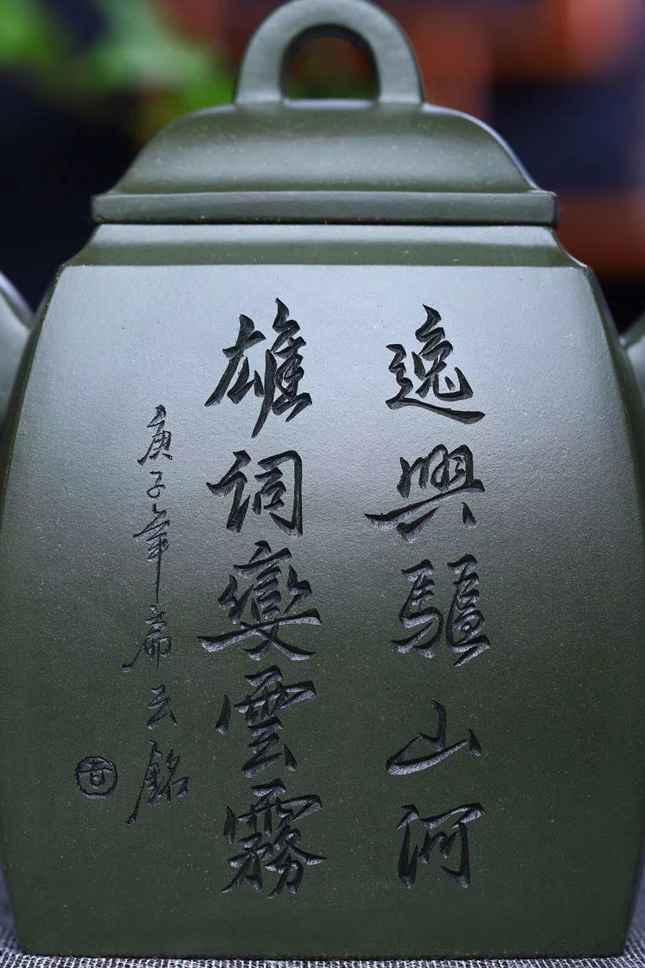 逸興驅山河
雄詞變雲霧
庚子年云銘